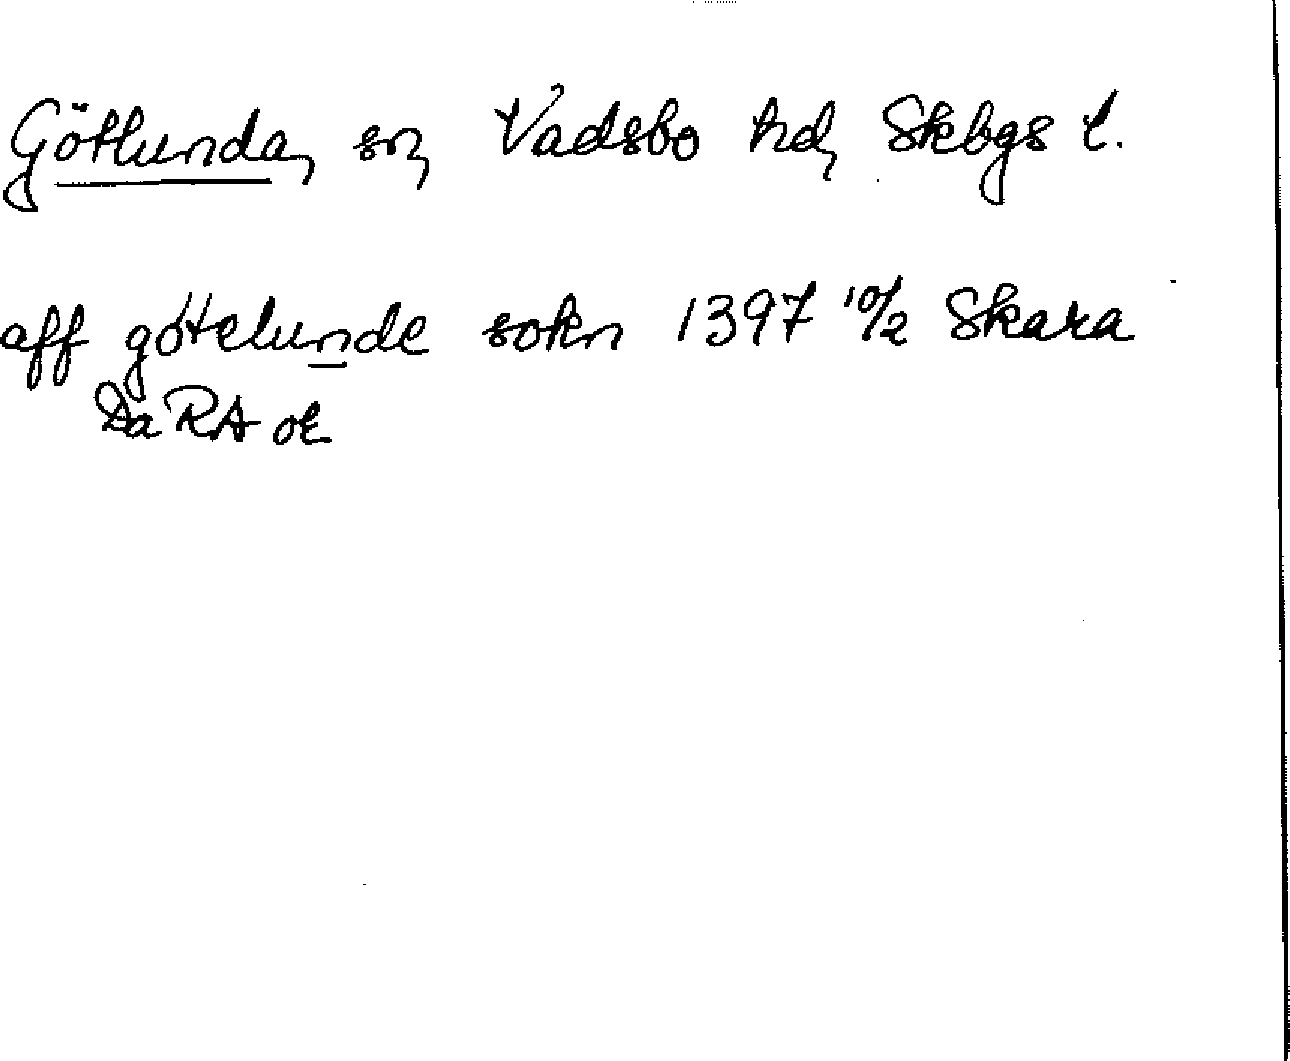 Götlunda, sn, Vadsbo hd, Skbgs l.
aff götelunde sokn 1397 10/2 Skara
Da RA or